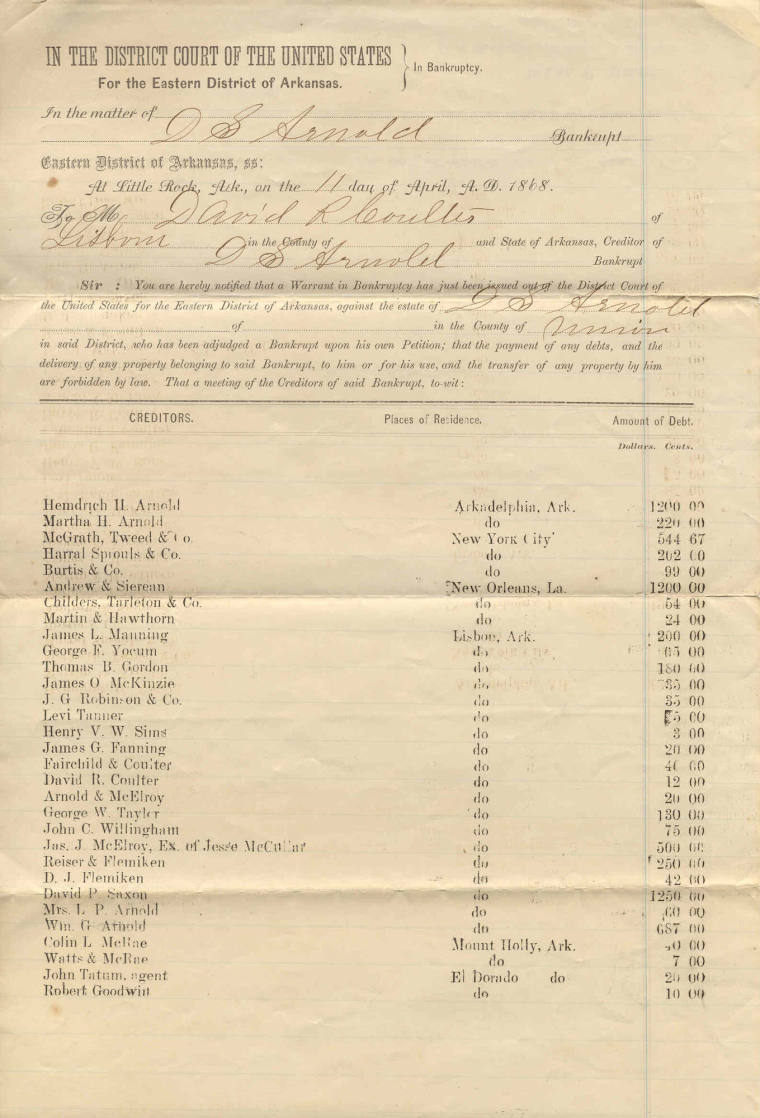 IN THE DISTRICT COURT OF THE UNITED STATES
For the Eastern District of Arkansas.
} In Bankruptcy.
In the matter of
D S Arnold Bankrupt
Eastern District of Arkansas, ss:
At Little Rock, Ark., on the 11 day of April, A. D. 1868.
To M David R Coulter of
Lisbon in the County of and State of Arkansas, Creditor of
D S Arnold Bankrupt
Sir : You are hereby notified that a Warrant in Bankruptcy has just been issued out of the District Court of
the United States for the Eastern District of Arkansas, against the estate of D S Arnold
of in the County of Union
in said District, who has been adjudged a Bankrupt upon his own Petition; that the payment of any debts, and the
delivery of any property belonging to said Bankrupt, to him or for his use, and the transfer of any property by him
are forbidden by law. That a meeting of the Creditors of said Bankrupt, to-wit:
CREDITORS. Places of Residence. Amount of Debt.
Dollars. Cents.
Hemdrich H. Arnold Arkadelphia, Ark. 1200 00
Martha H. Arnold do 220 00
McGrath, Tweed & Co. New York City 544 67
Harral Sprouls & Co. do 202 00
Burtis & Co. do 99 00
Andrew & Sierean New Orleans, La. 1200 00
Childers, Tarleton & Co. do 54 00
Martin & Hawthorn do 24 00
James L. Manning Lisbon, Ark. 200 00
George F. Yocum do 65 00
Thomas B. Gordon do 180 00
James O. McKinzie do 35 00
J. G. Robinson & Co. do 35 00
Levi Tanner do 5 00
Henry V. W. Sims do 3 00
James G. Fanning do 20 00
Fairchild & Coulter do
David R. Coulter do 12 00
Arnold & McElroy do 20 00
George W. Taylor do 130 00
John C. Willingham do 75 00
Jas. J. McElroy, Ex. of Jesse McCullar do 500 00
Reiser & Flemiken do 250 00
D. J. Flemiken do 42 00
David P. Saxon do 1250 00
Mrs. L. P. Arnold do 60 00
Wm. G. Arnold do 687 00
Colin L McRae Mount Holly, Ark. 00
Watts & McRae do 7 00
John Tatum, agent El Dorado do 20 00
Robert Goodwin do 10 00